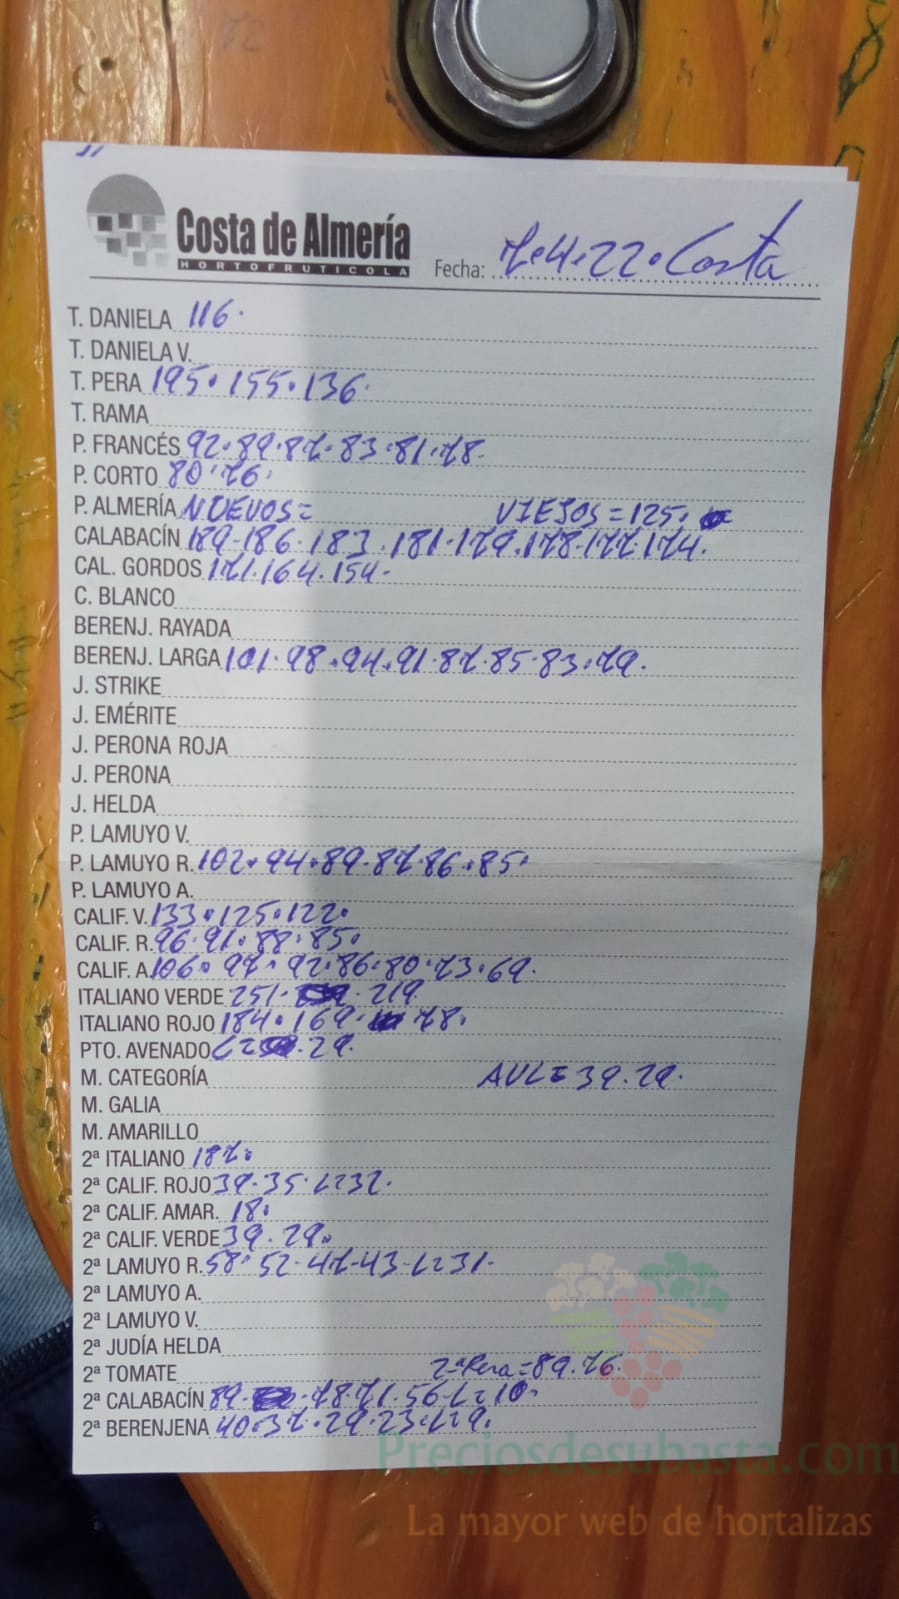 Costa de Almería
HORTOFRUTICOLA
Fecha: 7.4.22. Costa
T. DANIELA 116.
T. DANIELA V.
T. PERA 195.155.136.
T. RAMA
P. FRANCÉS 92.89.87.83.81.78.
P. CORTO 80.76.
P. ALMERÍA NUEVOS= VIEJOS=125.
CALABACÍN 189.186.183.181.179.178.177.174.
CAL. GORDOS 171.164.154.
C. BLANCO
BERENJ. RAYADA
BERENJ. LARGA 101.98.94.91.87.85.83.79.
J. STRIKE
J. EMÉRITE
J. PERONA ROJA
J. PERONA
J. HELDA
P. LAMUYO V.
P. LAMUYO R. 102.94.89.87.86.85.
P. LAMUYO A.
CALIF. V. 133.125.122.
CALIF. R. 96.91.88.85.
CALIF. A. 106.97.92.86.80.73.69.
ITALIANO VERDE 251. 219
ITALIANO ROJO 184.169. 78.
PTO. AVENADO 29.
M. CATEGORÍA 39.29.
M. GALIA
M. AMARILLO
2ª ITALIANO 187.
2ª CALIF. ROJO 39.35.L=32.
2ª CALIF. AMAR. 18.
2ª CALIF. VERDE 39.29.
2ª LAMUYO R. 58.52.47.43.L=31.
2ª LAMUYO A.
2ª LAMUYO V.
2ª JUDÍA HELDA
2ª TOMATE 2ª Pera=89.76.
2ª CALABACÍN 89. 78.71.56.L=10.
2ª BERENJENA 40.37.29.23.L=9.
Preciosdesubasta.com
La mayor web de hortalizas